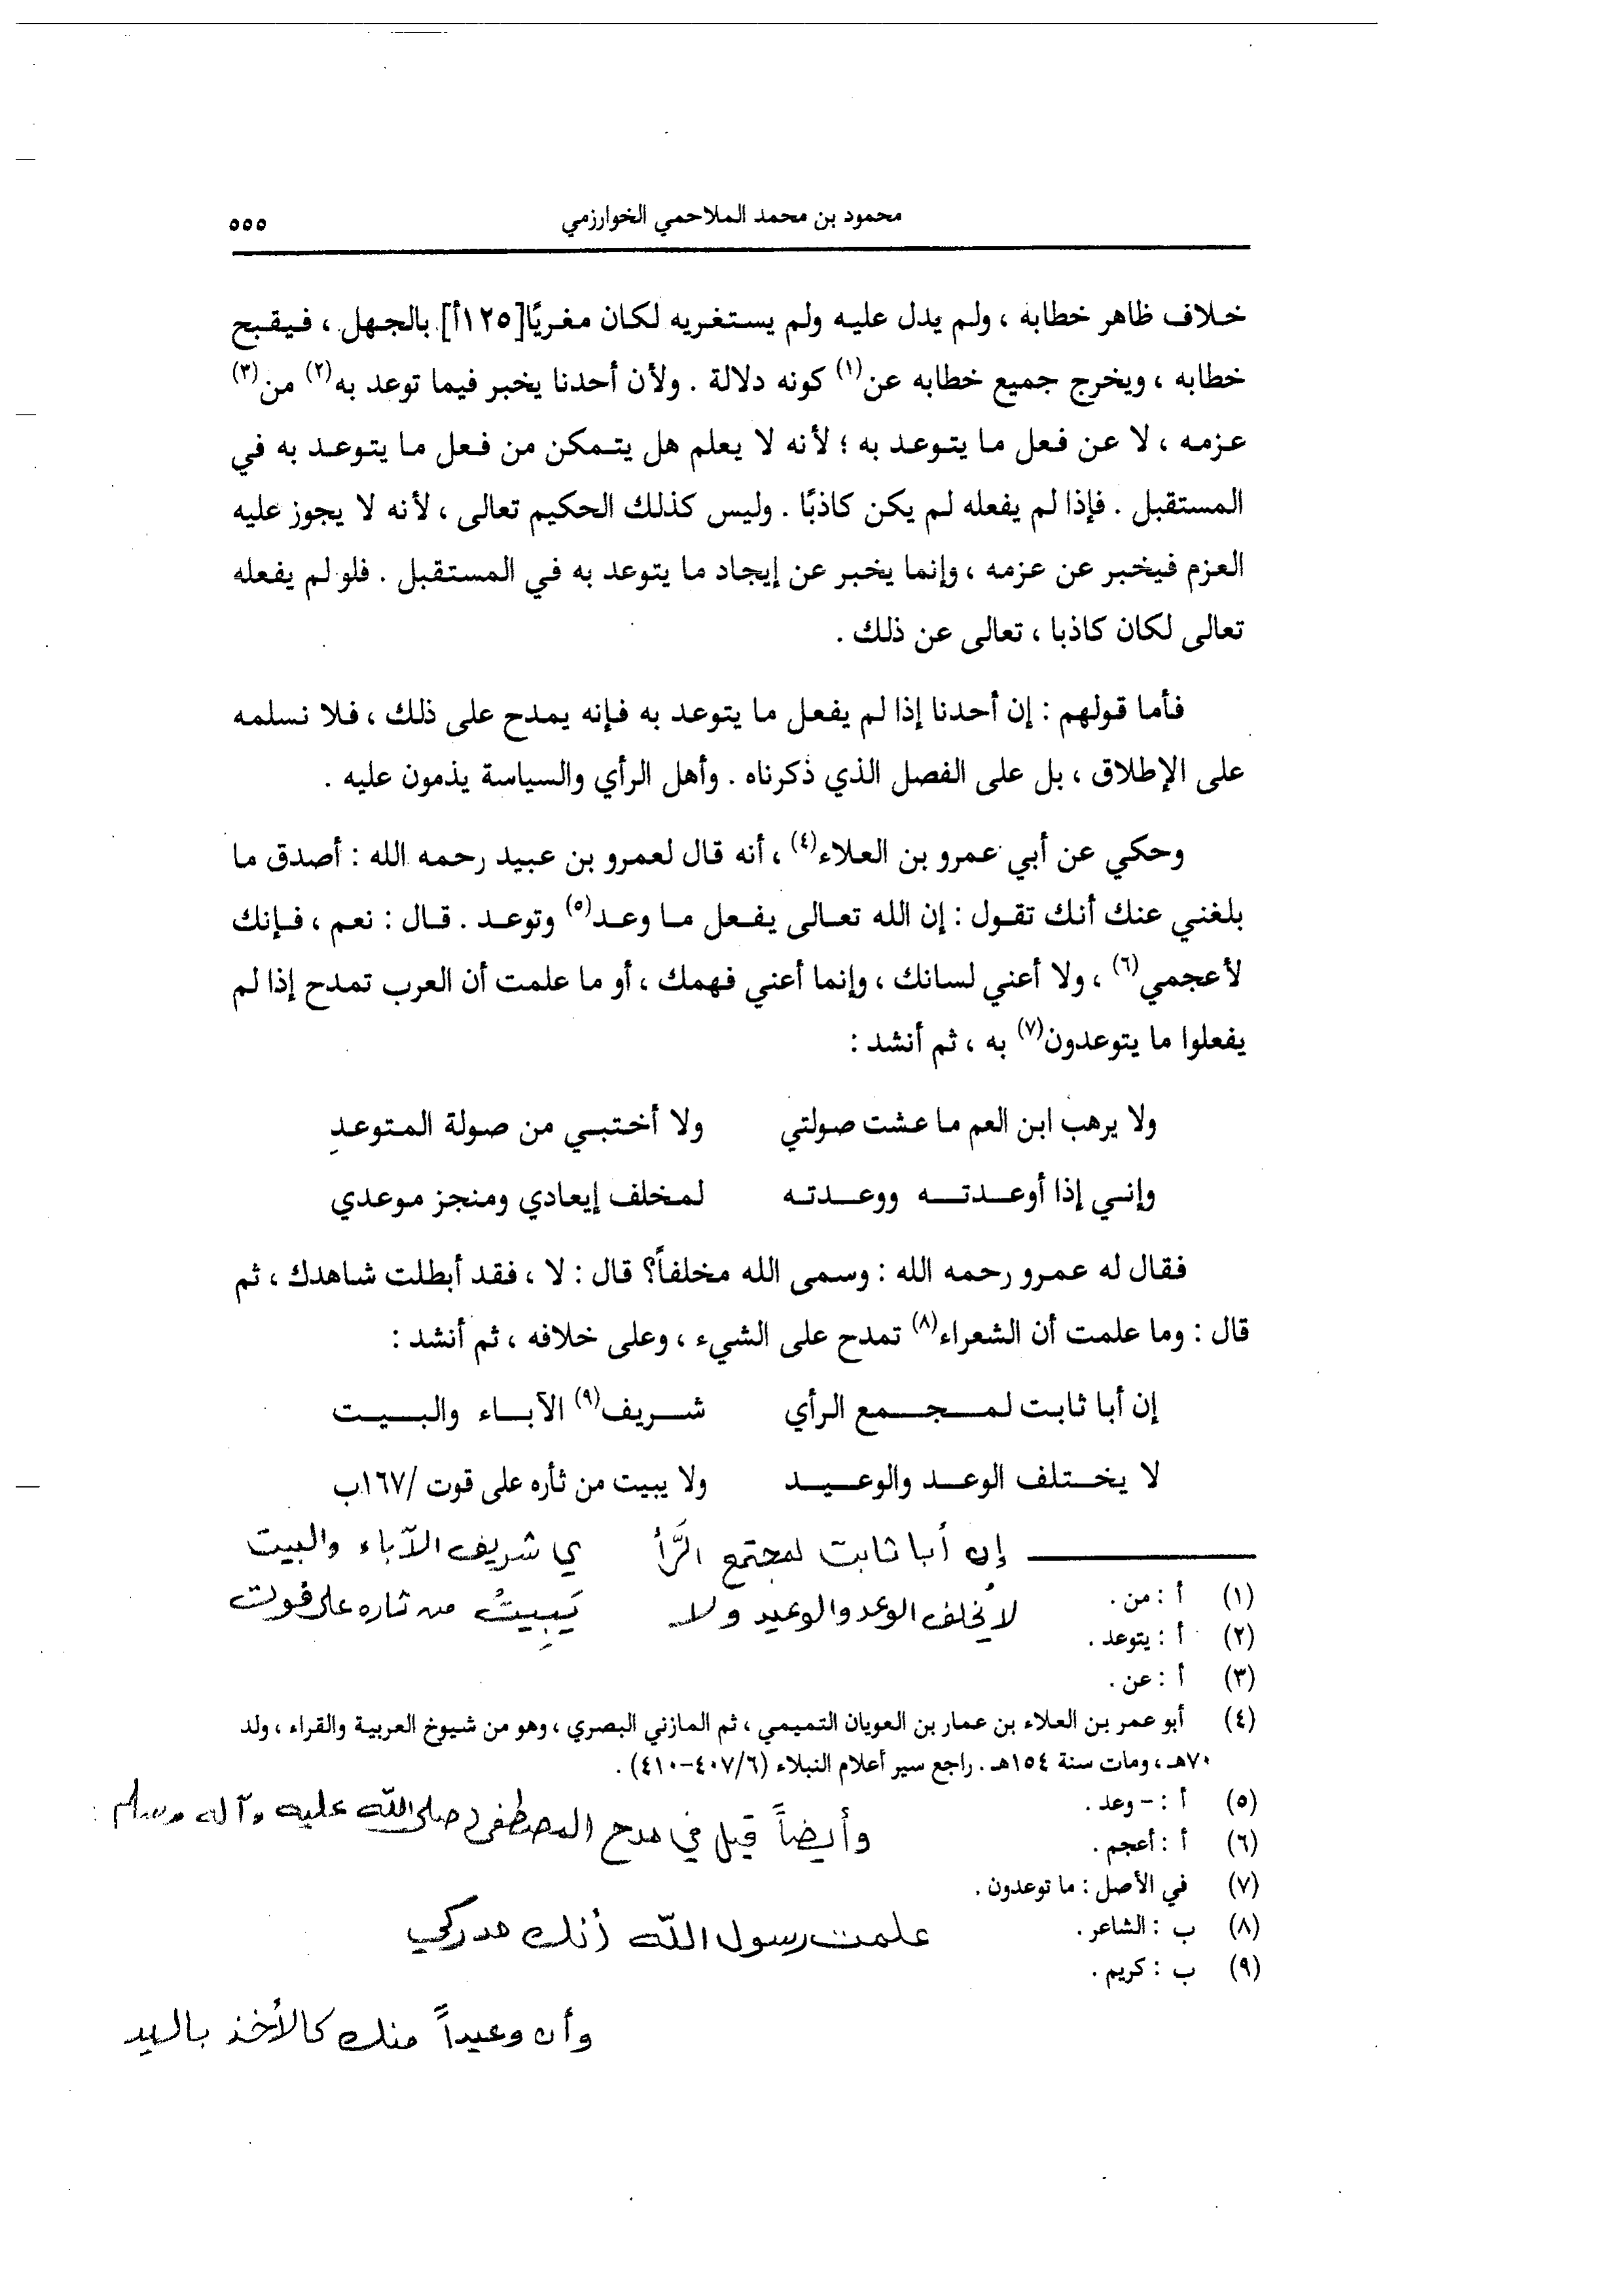 محمود بن محمد الملاحمي الخوارزمي ٥٥٥
خلاف ظاهر خطابه ، ولم يدل عليه ولم يستغربه لكان مغريًا[١٢٥أ] بالجهل ، فيقبح
خطابه ، ويخرج جميع خطابه عن(١) كونه دلالة . ولأن أحدنا يخبر فيما توعد به(٢) من(٣)
عزمه ، لا عن فعل ما يتوعد به ؛ لأنه لا يعلم هل يتمكن من فعل ما يتوعد به في
المستقبل . فإذا لم يفعله لم يكن كاذبًا . وليس كذلك الحكيم تعالى ، لأنه لا يجوز عليه
العزم فيخبر عن عزمه ، وإنما يخبر عن إيجاد ما يتوعد به في المستقبل . فلو لم يفعله
تعالى لكان كاذبا ، تعالى عن ذلك .
فأما قولهم : إن أحدنا إذا لم يفعل ما يتوعد به فإنه يمدح على ذلك ، فلا نسلمه
على الإطلاق ، بل على الفصل الذي ذكرناه . وأهل الرأي والسياسة يذمون عليه .
وحكي عن أبي عمرو بن العلاء(٤) ، أنه قال لعمرو بن عبيد رحمه الله : أصدق ما
بلغني عنك أنك تقول : إن الله تعالى يفعل ما وعد(٥) وتوعد . قال : نعم ، فإنك
لأعجمي(٦) ، ولا أعني لسانك ، وإنما أعني فهمك ، أو ما علمت أن العرب تمدح إذا لم
يفعلوا ما يتوعدون(٧) به ، ثم أنشد :
ولا يرهب ابن العم ما عشت صولتي ولا أختبي من صولة المتوعدِ
وإني إذا أوعدته ووعدته لمخلف إيعادي ومنجز موعدي
فقال له عمرو رحمه الله : وسمى الله مخلفاً؟ قال : لا ، فقد أبطلت شاهدك ، ثم
قال : وما علمت أن الشعراء(٨) تمدح على الشيء ، وعلى خلافه ، ثم أنشد :
إن أبا ثابت لمجمع الرأي شريف(٩) الآباء والبيت
لا يختلف الوعد والوعيد ولا يبيت من ثأره على قوت /١٦٧ب
إن أبا ثابت لمجتمع الرَّأ ي شريف الآباء والبيت
لا يُخلف الوعد والوعيد ولا يَبِيتُ من ثاره على فوت
(١) أ : من .
(٢) أ : يتوعد .
(٣) أ : عن .
(٤) أبو عمر بن العلاء بن عمار بن العويان التميمي ، ثم المازني البصري ، وهو من شيوخ العربية والقراء ، ولد
٧٠هـ ، ومات سنة ١٥٤هـ . راجع سير أعلام النبلاء (٤٠٧/٦-٤١٠) .
(٥) أ : - وعد .
(٦) أ : أعجم .
وأيضاً قيل في مدح المصطفى صلى الله عليه وآله وسلم :
(٧) في الأصل : ما توعدون .
(٨) ب : الشاعر .
علمت رسول الله أنك مدركي
(٩) ب : كريم .
وأن وعيداً منك كالأخذ باليد